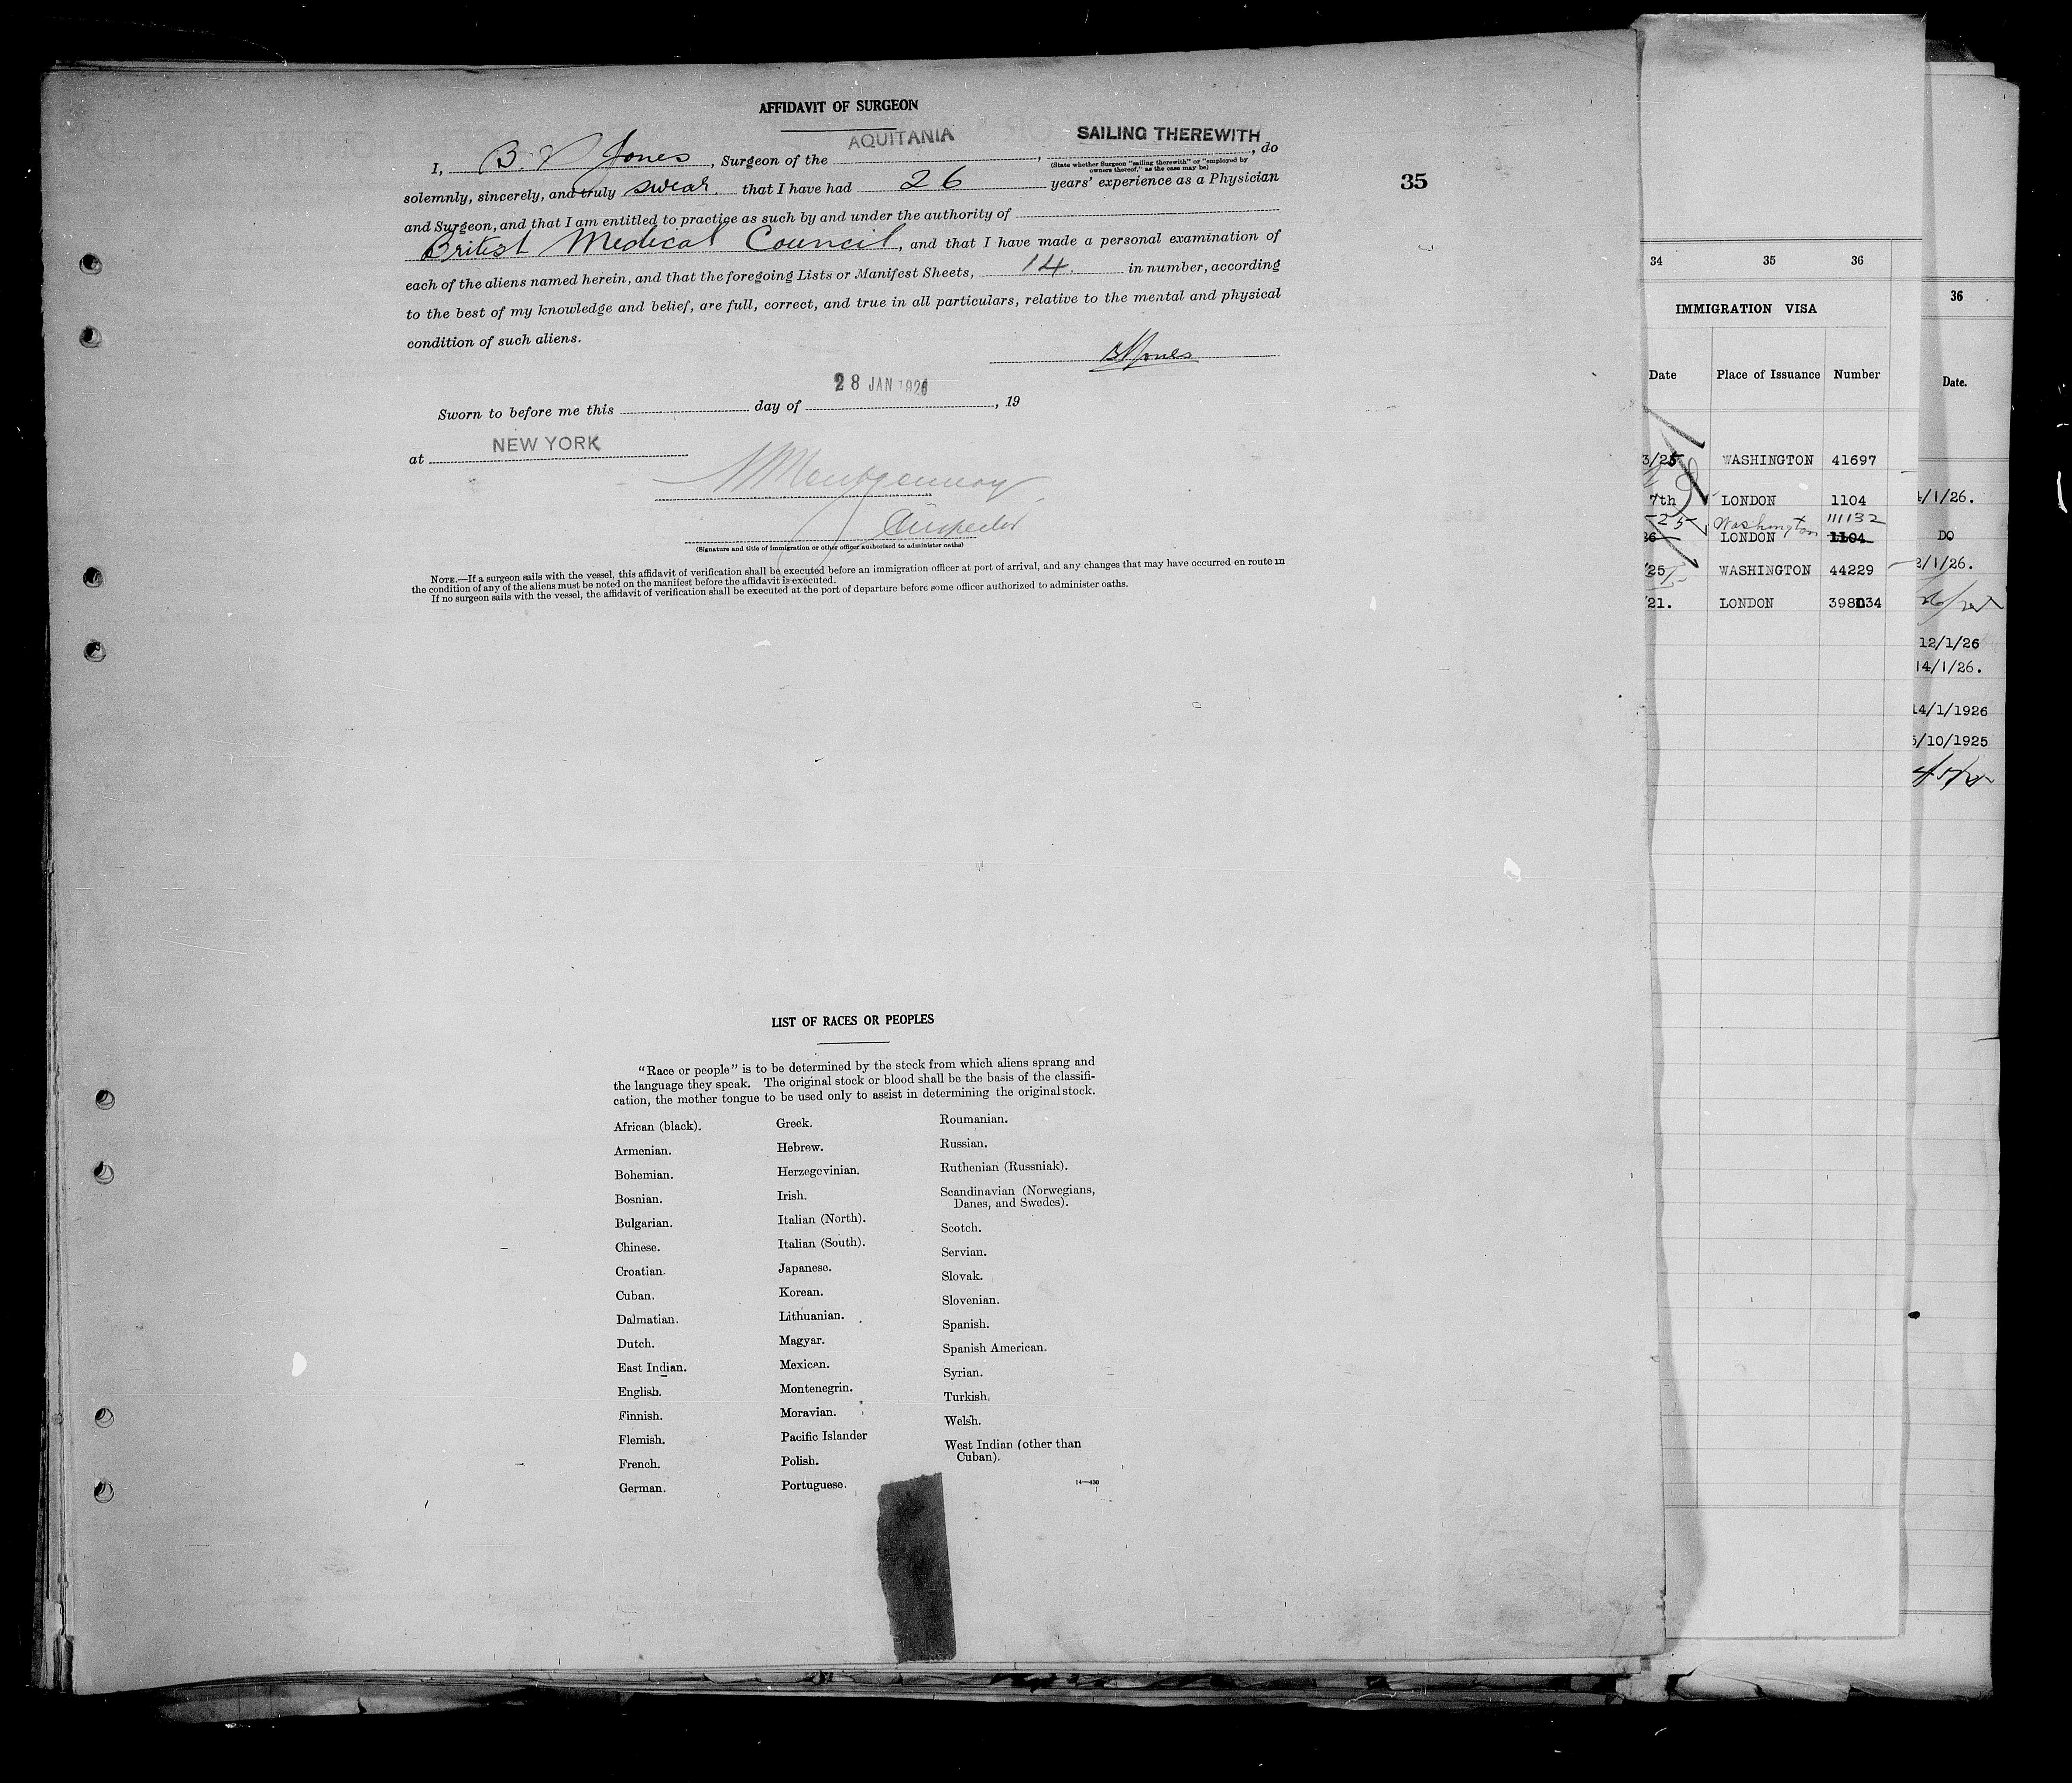 AFFIDAVIT OF SURGEON
I, B. Jones, Surgeon of the AQUITANIA, SAILING THEREWITH, do
(State whether Surgeon "sailing therewith" or "employed by
owners thereof," as the case may be)
solemnly, sincerely, and truly swear. that I have had 26 years' experience as a Physician
35
and Surgeon, and that I am entitled to practice as such by and under the authority of
British Medical Council, and that I have made a personal examination of
each of the aliens named herein, and that the foregoing Lists or Manifest Sheets, 14. in number, according
to the best of my knowledge and belief, are full, correct, and true in all particulars, relative to the mental and physical
condition of such aliens.
BJones
28 JAN 1926
Sworn to before me this day of , 19
at NEW YORK
Montgomery
Inspector
(Signature and title of immigration or other officer authorized to administer oaths)
NOTE.—If a surgeon sails with the vessel, this affidavit of verification shall be executed before an immigration officer at port of arrival, and any changes that may have occurred en route in
the condition of any of the aliens must be noted on the manifest before the affidavit is executed.
If no surgeon sails with the vessel, the affidavit of verification shall be executed at the port of departure before some officer authorized to administer oaths.
LIST OF RACES OR PEOPLES
"Race or people" is to be determined by the stock from which aliens sprang and
the language they speak. The original stock or blood shall be the basis of the classifi-
cation, the mother tongue to be used only to assist in determining the original stock.
African (black).
Armenian.
Bohemian.
Bosnian.
Bulgarian.
Chinese.
Croatian.
Cuban.
Dalmatian.
Dutch.
East Indian.
English.
Finnish.
Flemish.
French.
German.
Greek.
Hebrew.
Herzegovinian.
Irish.
Italian (North).
Italian (South).
Japanese.
Korean.
Lithuanian.
Magyar.
Mexican.
Montenegrin.
Moravian.
Pacific Islander
Polish.
Portuguese.
Roumanian.
Russian.
Ruthenian (Russniak).
Scandinavian (Norwegians,
Danes, and Swedes).
Scotch.
Servian.
Slovak.
Slovenian.
Spanish.
Spanish American.
Syrian.
Turkish.
Welsh.
West Indian (other than
Cuban).
14—430
34 35 36
IMMIGRATION VISA
Date Place of Issuance Number
3/25 WASHINGTON 41697
7th LONDON 1104
25 Washington 111132
26 LONDON 1104
25 WASHINGTON 44229
21. LONDON 398034
36
Date.
1/1/26.
DO
2/1/26.
12/1/26
14/1/26.
14/1/1926
5/10/1925